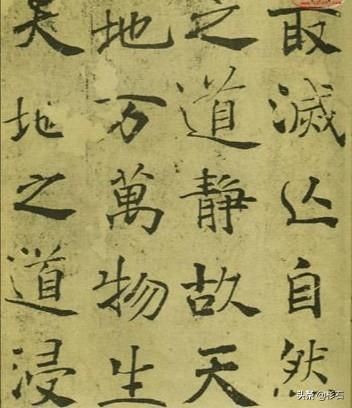 取滅亾自然
之道靜故天
地万萬物生
天地之道浸
头条